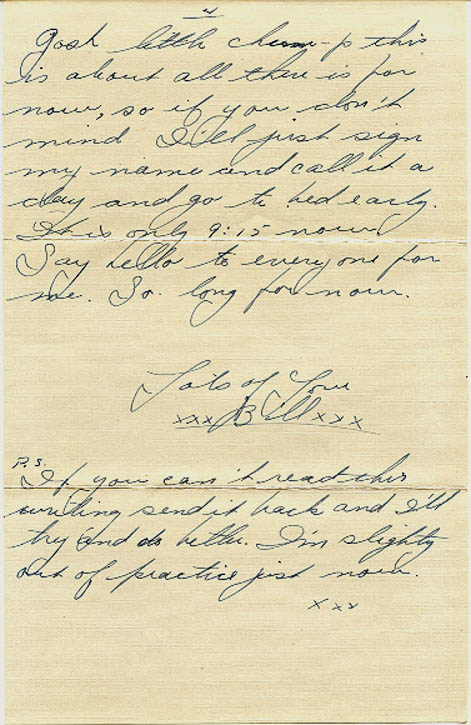 4
Gosh little chum-p this
is about all there is for
now, so if you don't
mind I'll just sign
my name and call it a
day and go to bed early.
It is only 9:15 now
Say hello to everyone for
me. So long for now.
Lots of Love
xxx Bill xxx
P.S.
If you can't read this
writing send it back and I'll
try and do better. I'm slighty
out of practice just now.
xxx